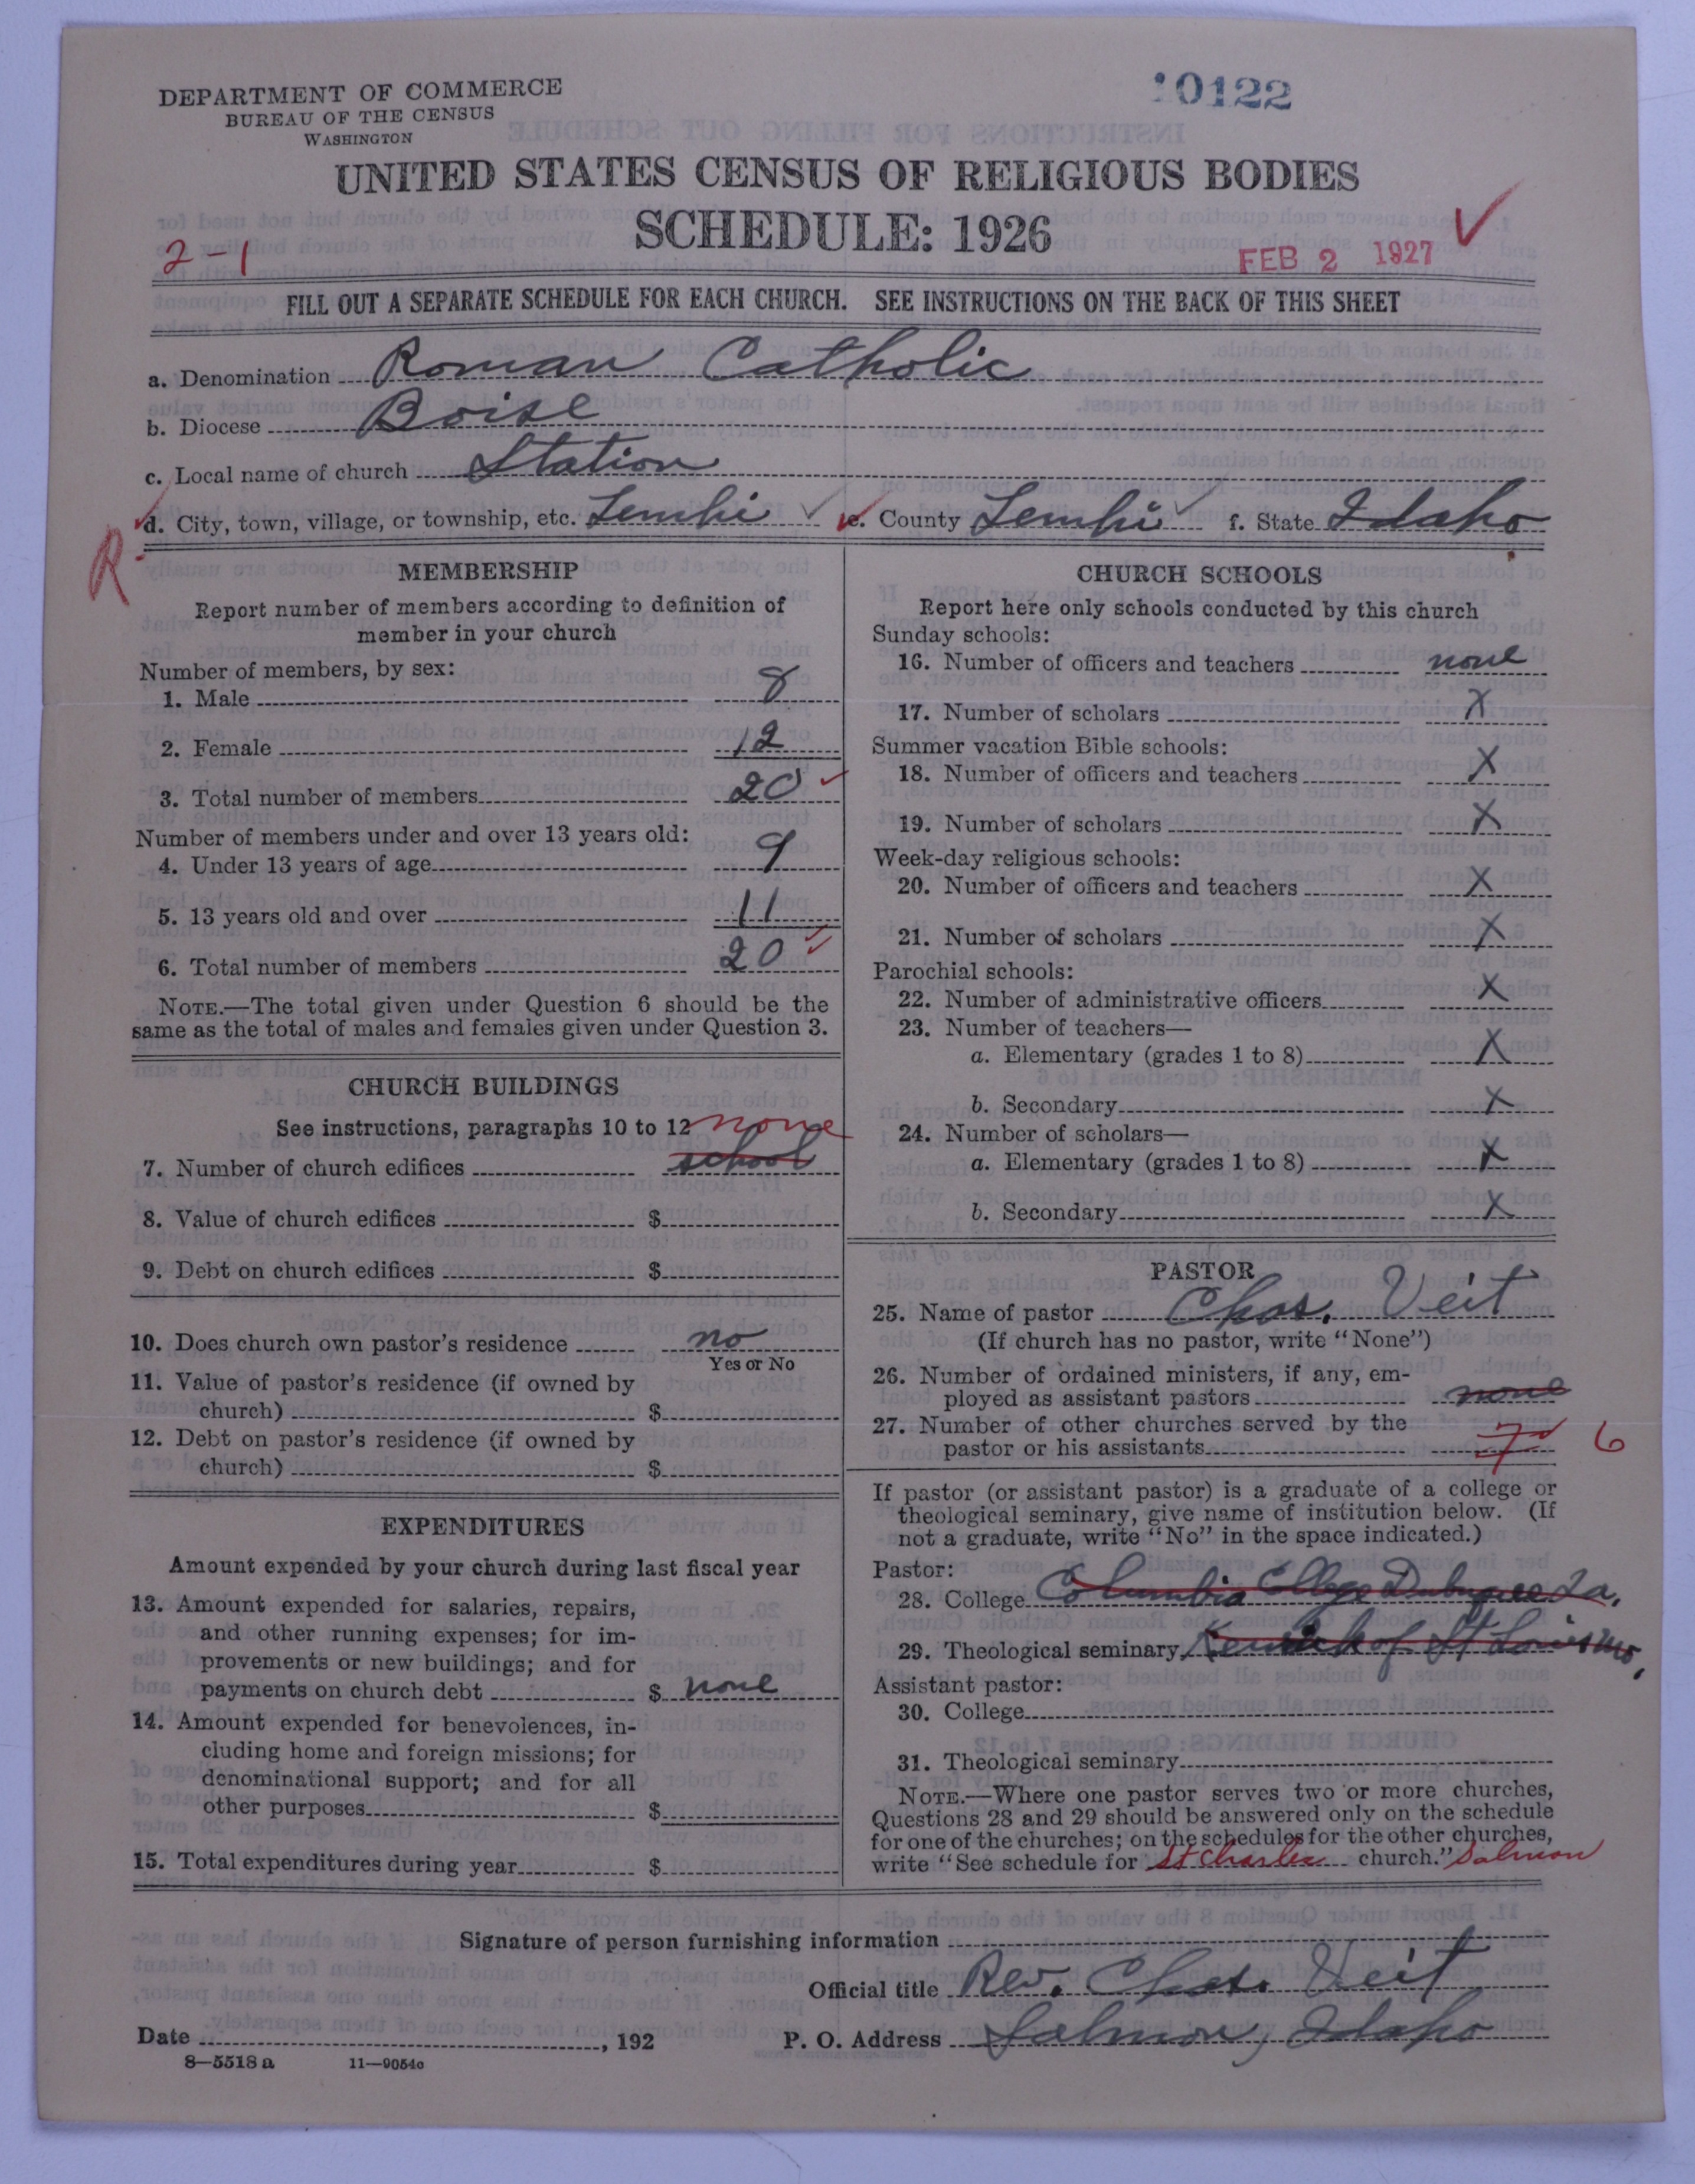 DEPARTMENT OF COMMERCE
BUREAU OF THE CENSUS
WASHINGTON
10122
UNITED STATES CENSUS OF RELIGIOUS BODIES
SCHEDULE: 1926
2-1
FEB 2 1927
FILL OUT A SEPARATE SCHEDULE FOR EACH CHURCH. SEE INSTRUCTIONS ON THE BACK OF THIS SHEET
a. Denomination Roman Catholic
b. Diocese Boise
c. Local name of church Station
d. City, town, village, or township, etc. Lemhi e. County Lemhi f. State Idaho
R
MEMBERSHIP
Report number of members according to definition of
member in your church
Number of members, by sex:
1. Male 8
2. Female 12
3. Total number of members 20
Number of members under and over 13 years old:
4. Under 13 years of age 9
5. 13 years old and over 11
6. Total number of members 20
NOTE.—The total given under Question 6 should be the
same as the total of males and females given under Question 3.
CHURCH BUILDINGS
See instructions, paragraphs 10 to 12 none
7. Number of church edifices school
8. Value of church edifices $
9. Debt on church edifices $
10. Does church own pastor's residence no
Yes or No
11. Value of pastor's residence (if owned by
church) $
12. Debt on pastor's residence (if owned by
church) $
EXPENDITURES
Amount expended by your church during last fiscal year
13. Amount expended for salaries, repairs,
and other running expenses; for im-
provements or new buildings; and for
payments on church debt $ none
14. Amount expended for benevolences, in-
cluding home and foreign missions; for
denominational support; and for all
other purposes $
15. Total expenditures during year $
CHURCH SCHOOLS
Report here only schools conducted by this church
Sunday schools:
16. Number of officers and teachers none
17. Number of scholars X
Summer vacation Bible schools:
18. Number of officers and teachers X
19. Number of scholars X
Week-day religious schools:
20. Number of officers and teachers X
21. Number of scholars X
Parochial schools:
22. Number of administrative officers X
23. Number of teachers—
a. Elementary (grades 1 to 8) X
b. Secondary X
24. Number of scholars—
a. Elementary (grades 1 to 8) X
b. Secondary X
PASTOR
25. Name of pastor Chas. Veit
(If church has no pastor, write "None")
26. Number of ordained ministers, if any, em-
ployed as assistant pastors none
27. Number of other churches served by the
pastor or his assistants 7 6
If pastor (or assistant pastor) is a graduate of a college or
theological seminary, give name of institution below. (If
not a graduate, write "No" in the space indicated.)
Pastor:
28. College Columbia College Dubuque Ia.
29. Theological seminary Kenrick of St Louis Mo.
Assistant pastor:
30. College
31. Theological seminary
NOTE.—Where one pastor serves two or more churches,
Questions 28 and 29 should be answered only on the schedule
for one of the churches; on the schedules for the other churches,
write "See schedule for St Charles church." Salmon
Signature of person furnishing information
Official title Rev. Chas. Veit
Date , 192 P. O. Address Salmon, Idaho
8—5518 a 11—9054c